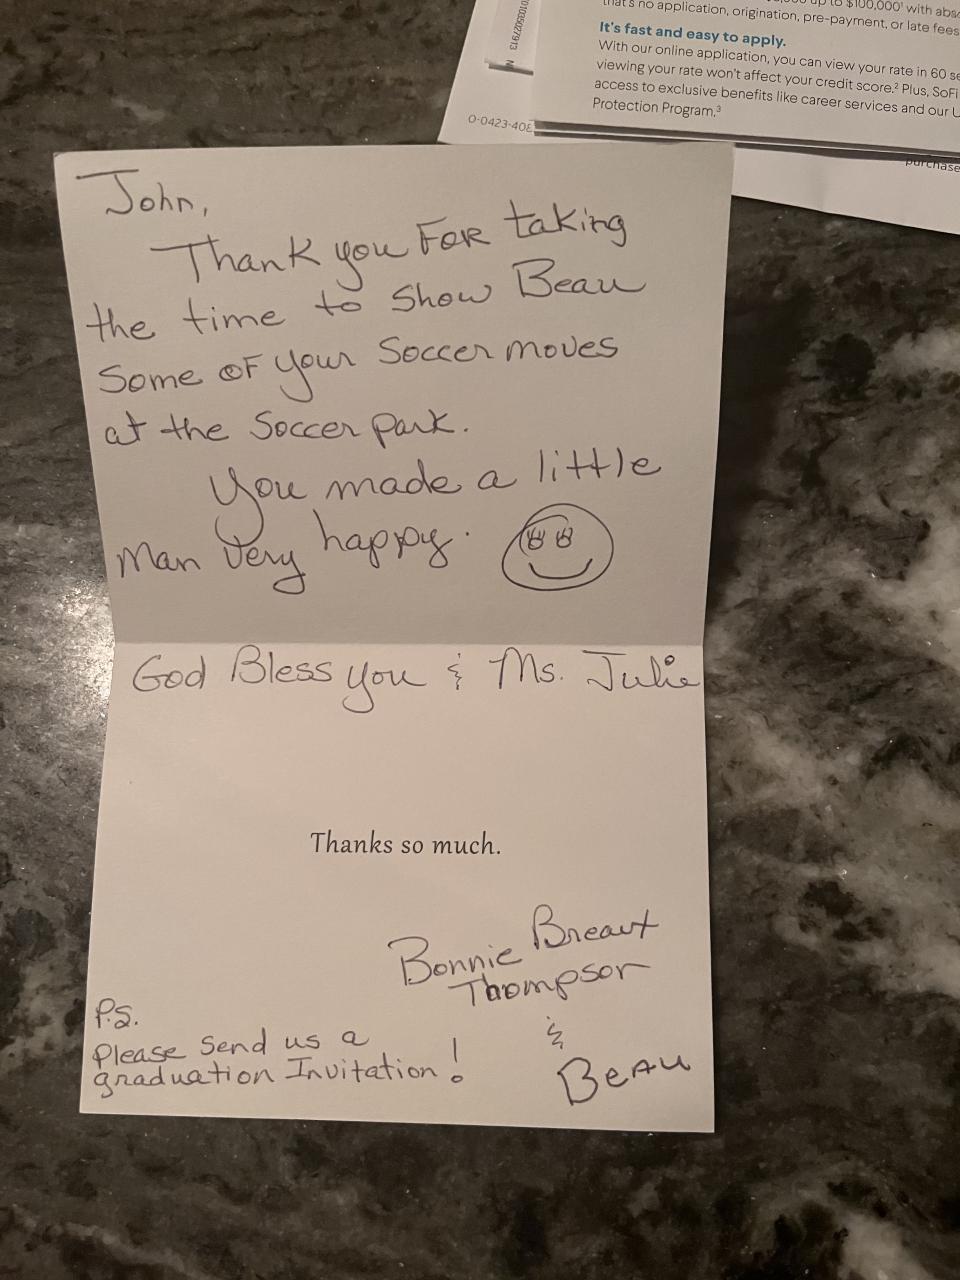 up to $100,000¹ with abso
that's no application, origination, pre-payment, or late fees
It's fast and easy to apply.
With our online application, you can view your rate in 60 se
viewing your rate won't affect your credit score.² Plus, SoFi
access to exclusive benefits like career services and our U
Protection Program.³
O-0423-40E
purchase
John,
Thank you FOR taking
the time to show Beau
Some OF your Soccer moves
at the Soccer park.
You made a little
Man very happy.
God Bless you & Ms. Julie
Thanks so much.
Bonnie Breaux
Thompson
&
Beau
P.S.
Please send us a
graduation Invitation!